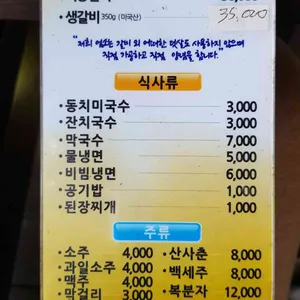 생갈비 350g (미국산) 35,000
"저희 업소는 갈비 외 어떠한 맛살도 사용하지 않으며
직접 가공하고 직접 양념을 합니다."
식사류
동치미국수 3,000
잔치국수 3,000
막국수 7,000
물냉면 5,000
비빔냉면 6,000
공기밥 1,000
된장찌개 1,000
주류
소주 4,000 산사춘 8,000
과일소주 4,000 백세주 8,000
맥주 4,000 복분자 12,000
막걸리 3,000